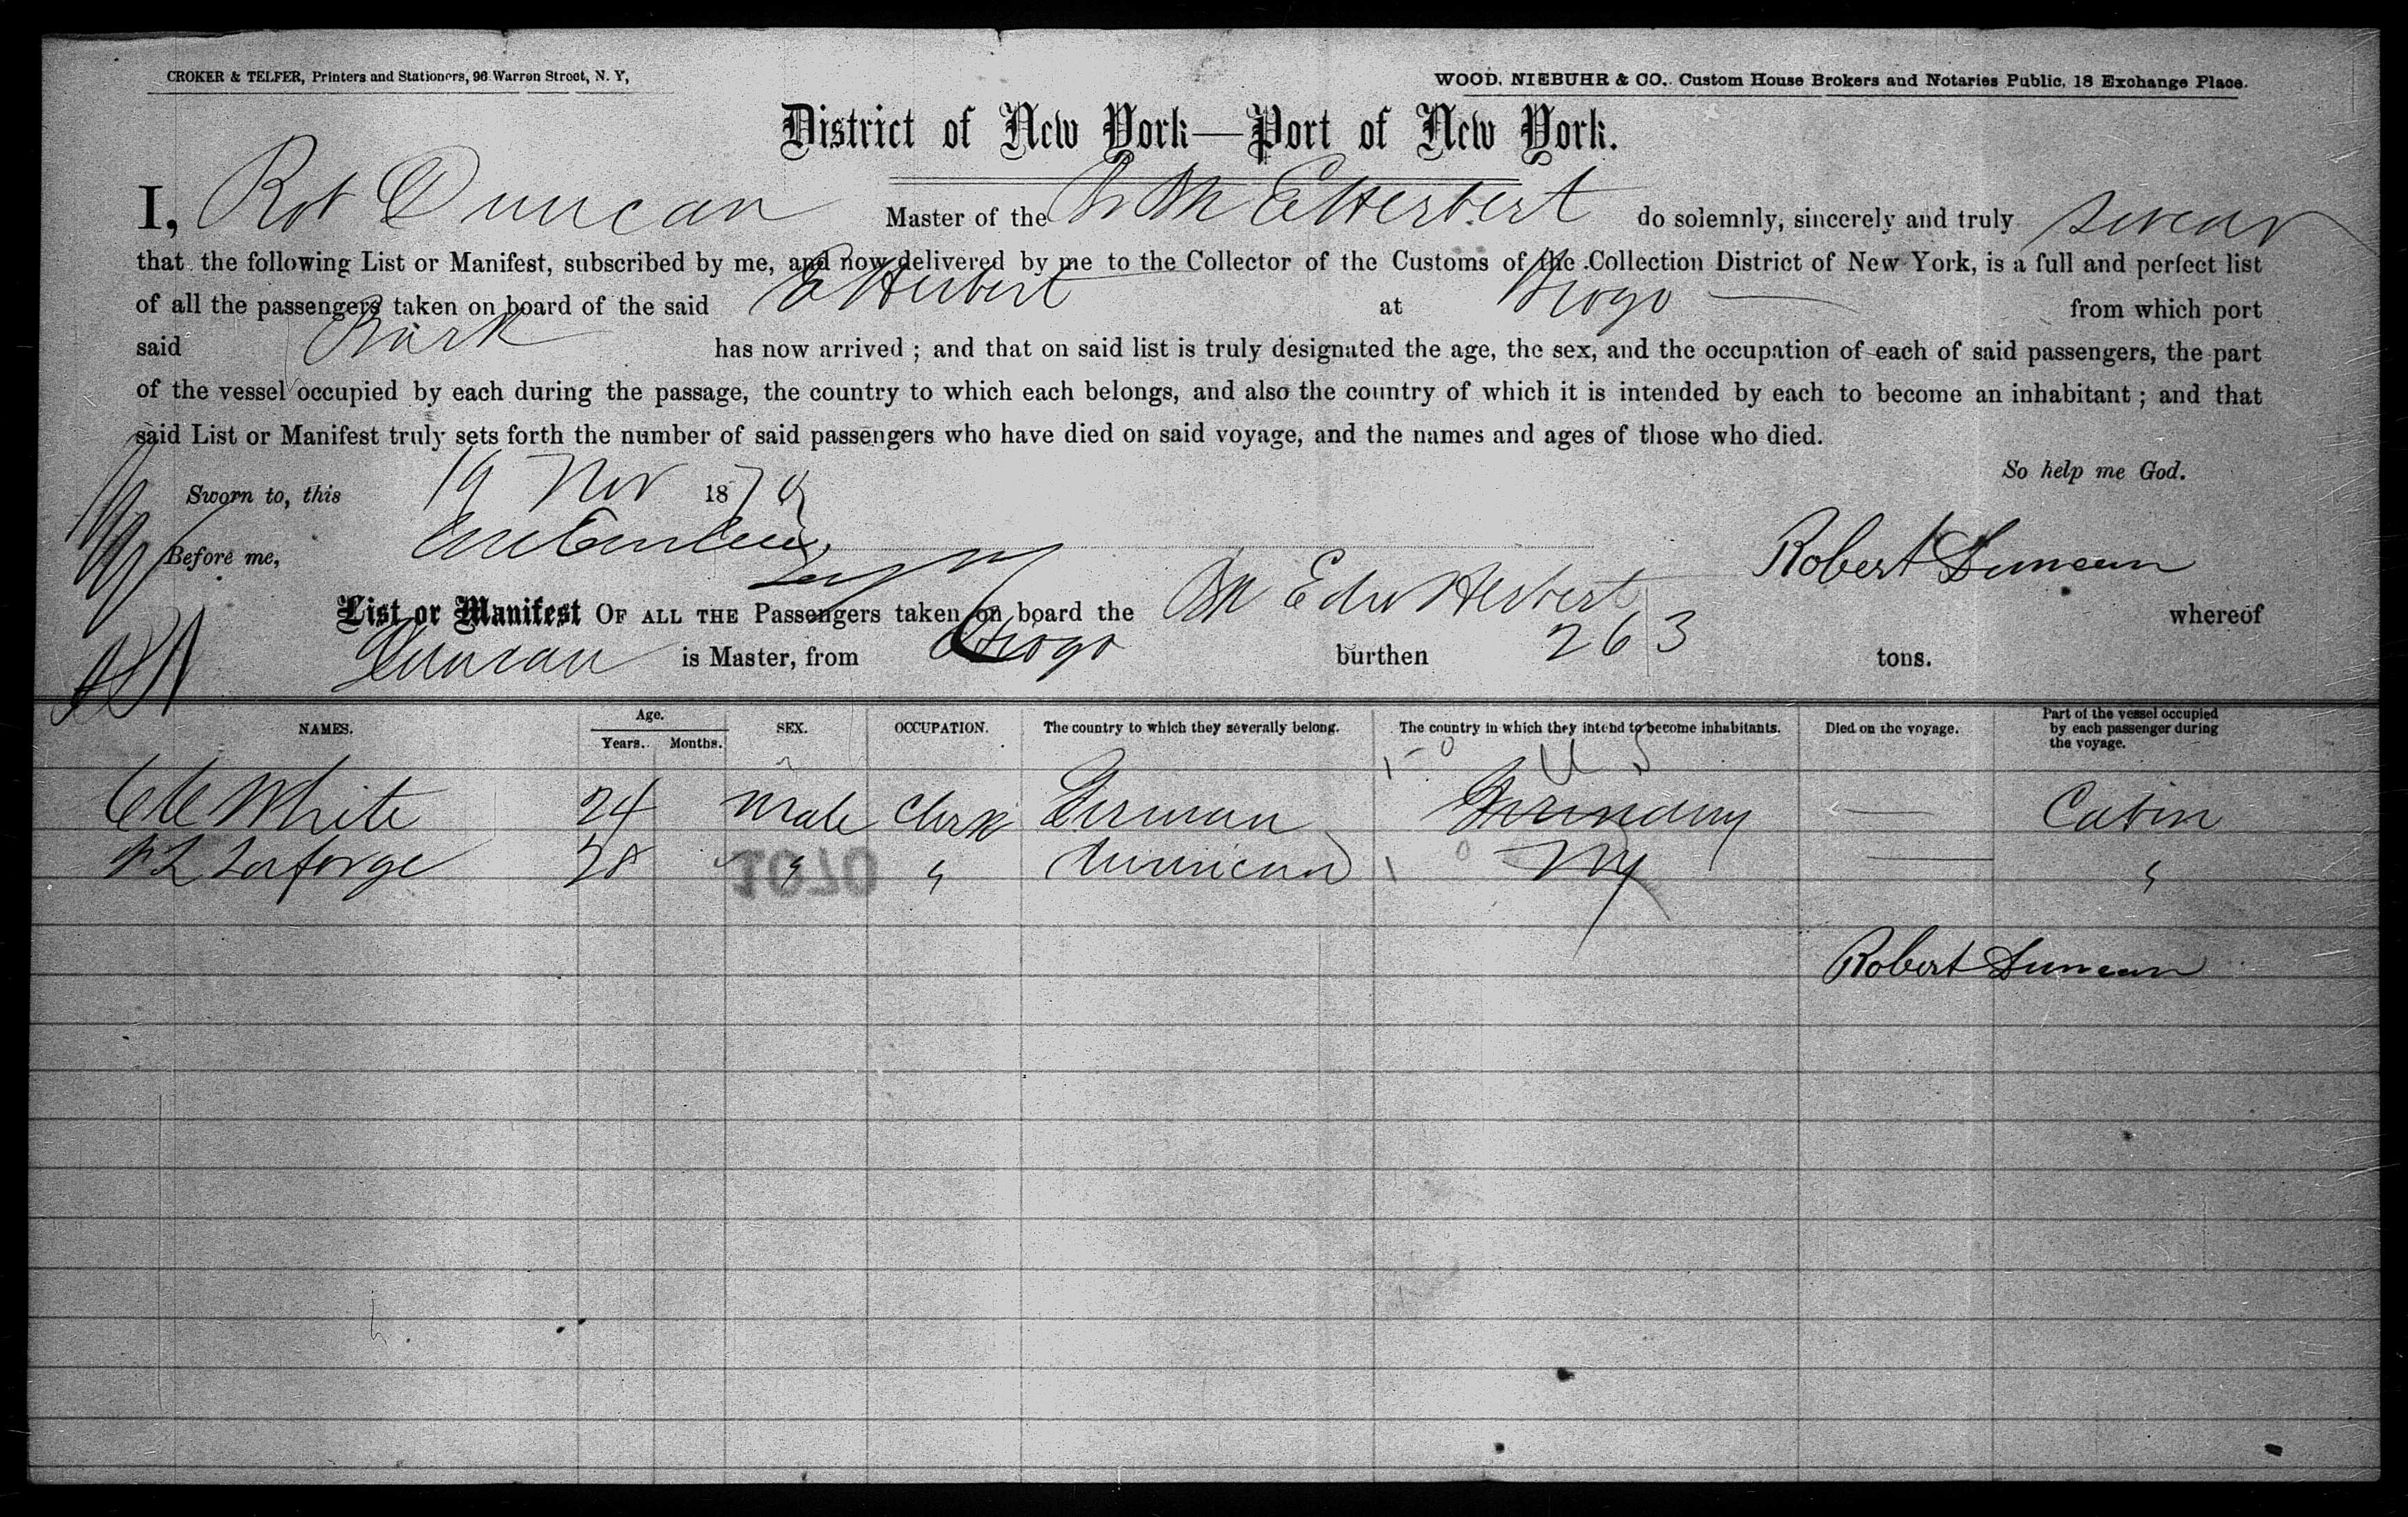 CROKER & TELFER, Printers and Stationers, 96 Warren Street, N. Y,
WOOD, NIEBUHR & CO,. Custom House Brokers and Notaries Public, 18 Exchange Place.
District of New York—Port of New York.
I, Rob Duncan Master of the Br Bk E Herbert do solemnly, sincerely and truly swear
that the following List or Manifest, subscribed by me, and now delivered by me to the Collector of the Customs of the Collection District of New York, is a full and perfect list
of all the passengers taken on board of the said E Herbert at Hiogo from which port
said Bark has now arrived ; and that on said list is truly designated the age, the sex, and the occupation of each of said passengers, the part
of the vessel occupied by each during the passage, the country to which each belongs, and also the country of which it is intended by each to become an inhabitant ; and that
said List or Manifest truly sets forth the number of said passengers who have died on said voyage, and the names and ages of those who died.
So help me God.
Sworn to, this 19 Nov 1879
Before me,
Robert Duncan
List or Manifest OF ALL THE Passengers taken on board the Bk Edw Herbert whereof
Duncan is Master, from Hiogo burthen 263 tons.
NAMES. Age. Years. Months. SEX. OCCUPATION. The country to which they severally belong. The country in which they intend to become inhabitants. Died on the voyage. Part of the vessel occupied by each passenger during the voyage.
U S
White 24 Male Clerk German Germany — Cabin
Laforge 28 " " American NY — "
1070
Robert Duncan